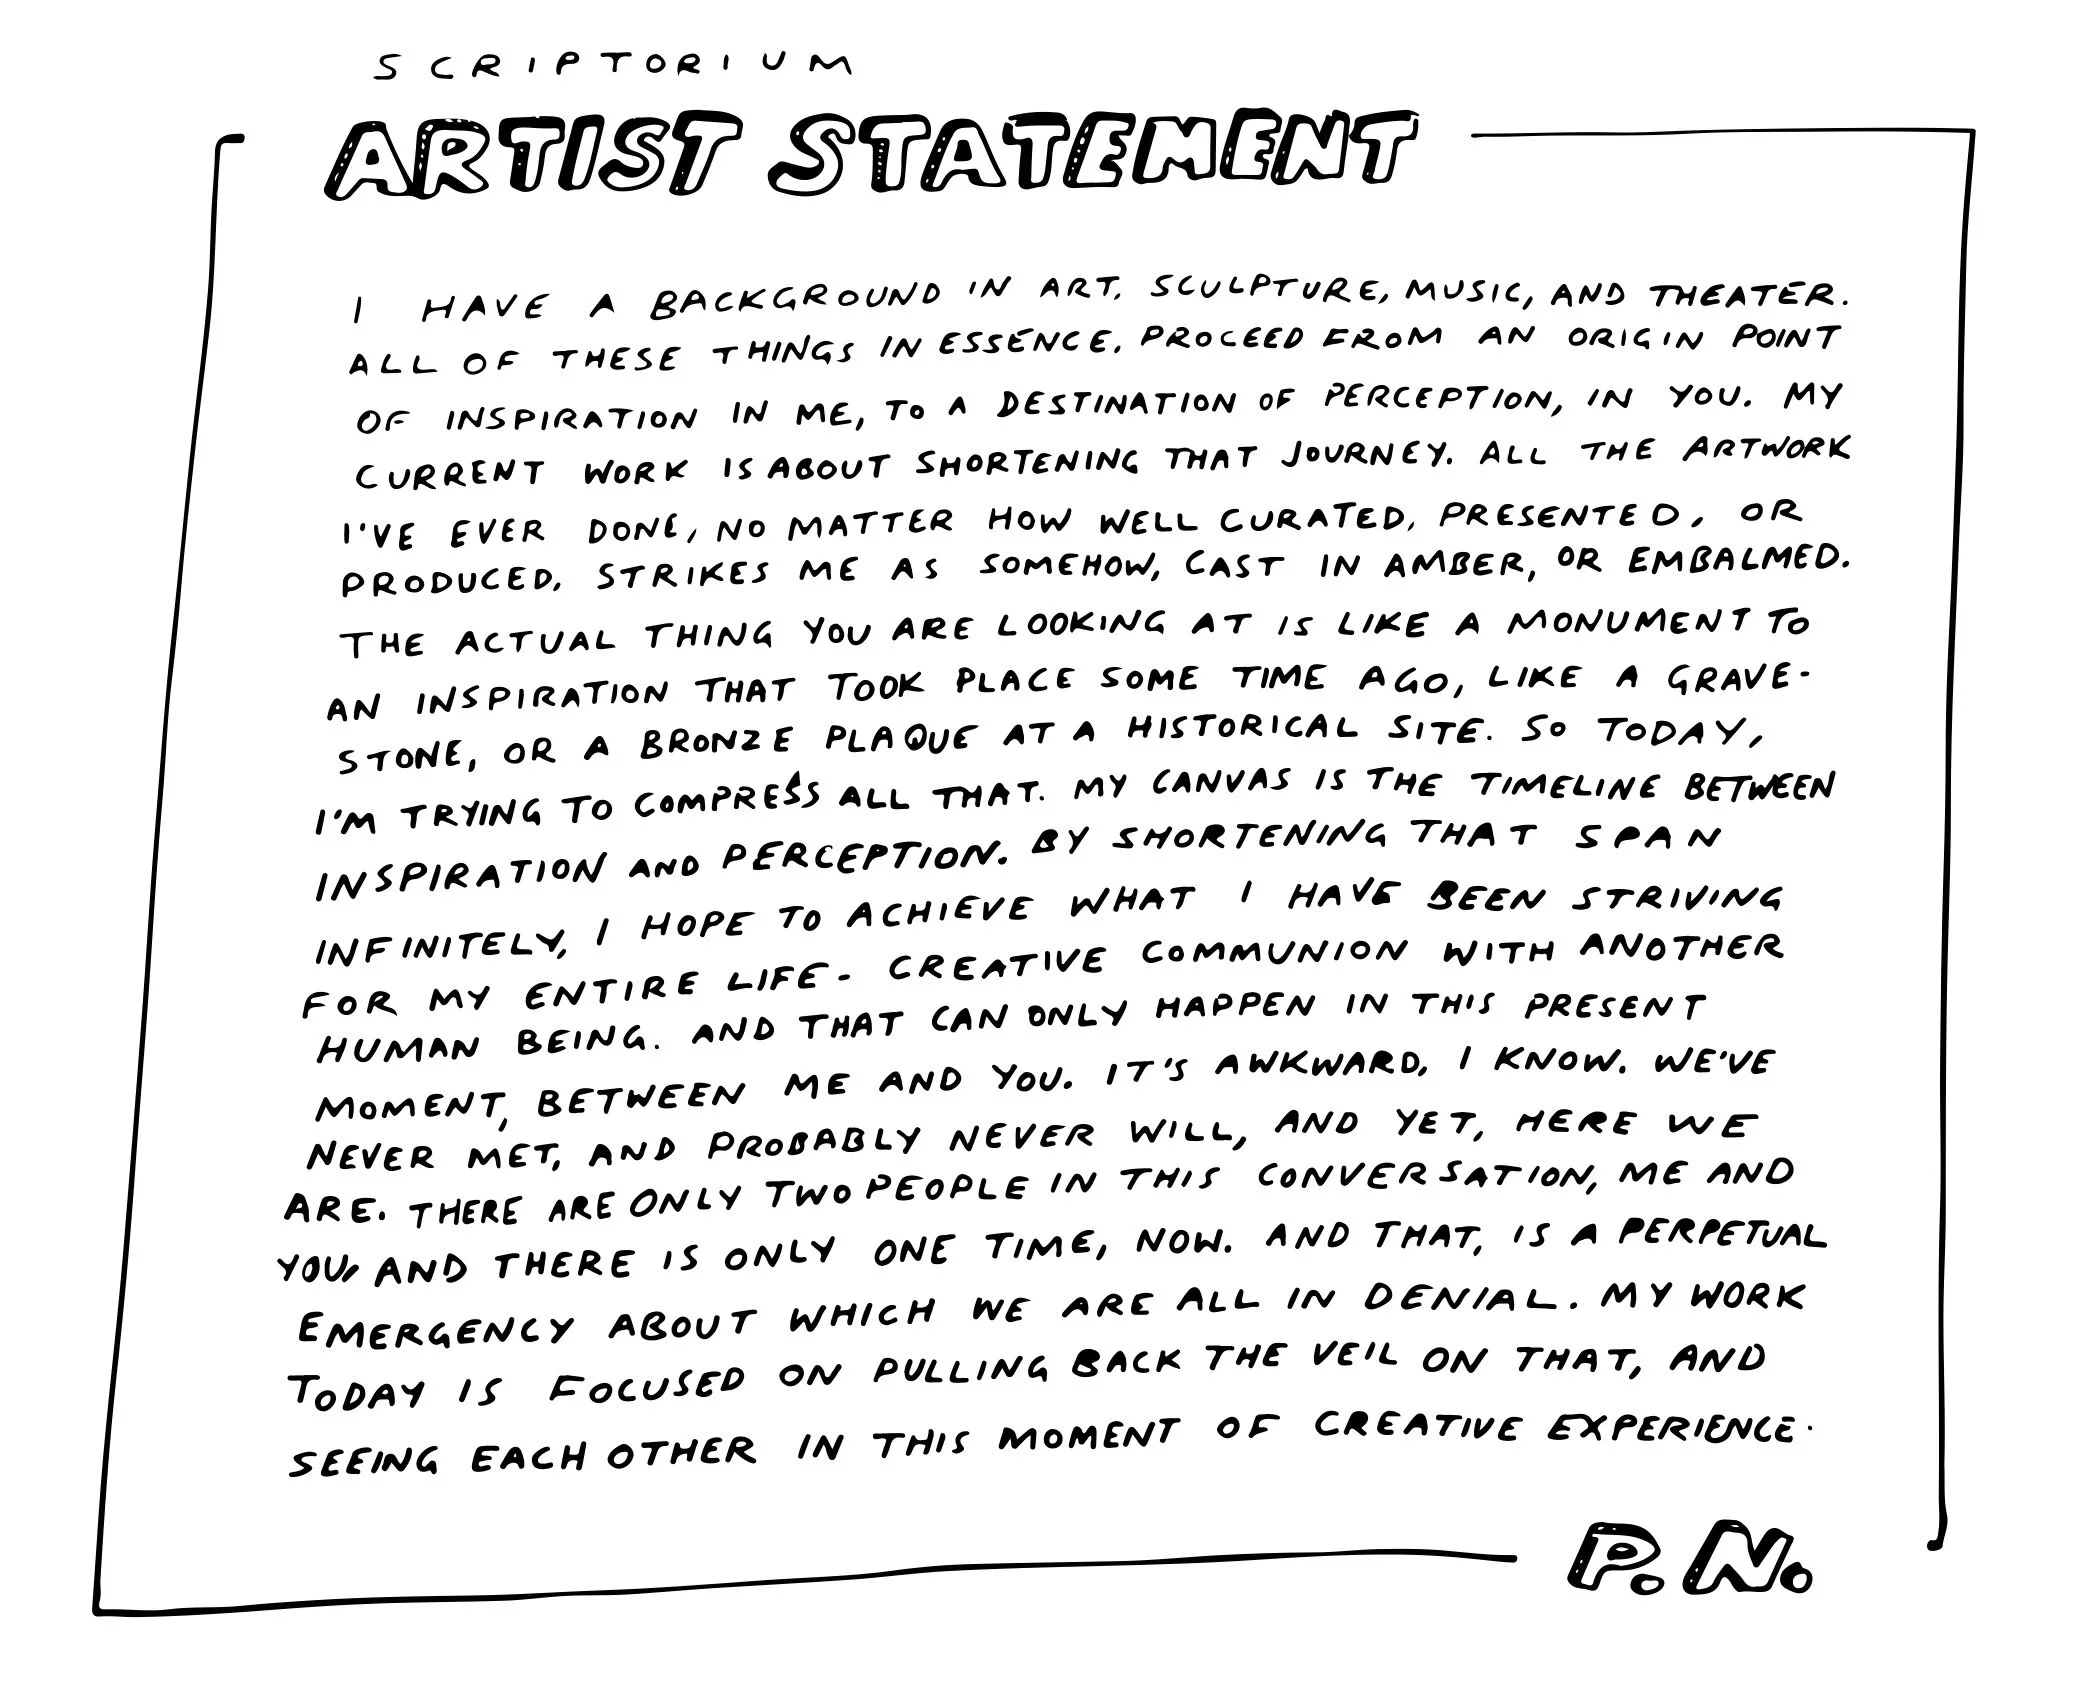 SCRIPTORIUM
ARTIST STATEMENT
I HAVE A BACKGROUND IN ART, SCULPTURE, MUSIC, AND THEATER.
ALL OF THESE THINGS IN ESSENCE, PROCEED FROM AN ORIGIN POINT
OF INSPIRATION IN ME, TO A DESTINATION OF PERCEPTION, IN YOU. MY
CURRENT WORK IS ABOUT SHORTENING THAT JOURNEY. ALL THE ARTWORK
I'VE EVER DONE, NO MATTER HOW WELL CURATED, PRESENTED, OR
PRODUCED, STRIKES ME AS SOMEHOW, CAST IN AMBER, OR EMBALMED.
THE ACTUAL THING YOU ARE LOOKING AT IS LIKE A MONUMENT TO
AN INSPIRATION THAT TOOK PLACE SOME TIME AGO, LIKE A GRAVE-
STONE, OR A BRONZE PLAQUE AT A HISTORICAL SITE. SO TODAY,
I'M TRYING TO COMPRESS ALL THAT. MY CANVAS IS THE TIMELINE BETWEEN
INSPIRATION AND PERCEPTION. BY SHORTENING THAT SPAN
INFINITELY, I HOPE TO ACHIEVE WHAT I HAVE BEEN STRIVING
FOR MY ENTIRE LIFE - CREATIVE COMMUNION WITH ANOTHER
HUMAN BEING. AND THAT CAN ONLY HAPPEN IN THIS PRESENT
MOMENT, BETWEEN ME AND YOU. IT'S AWKWARD, I KNOW. WE'VE
NEVER MET, AND PROBABLY NEVER WILL, AND YET, HERE WE
ARE. THERE ARE ONLY TWO PEOPLE IN THIS CONVERSATION, ME AND
YOU, AND THERE IS ONLY ONE TIME, NOW. AND THAT, IS A PERPETUAL
EMERGENCY ABOUT WHICH WE ARE ALL IN DENIAL. MY WORK
TODAY IS FOCUSED ON PULLING BACK THE VEIL ON THAT, AND
SEEING EACH OTHER IN THIS MOMENT OF CREATIVE EXPERIENCE.
P.N.